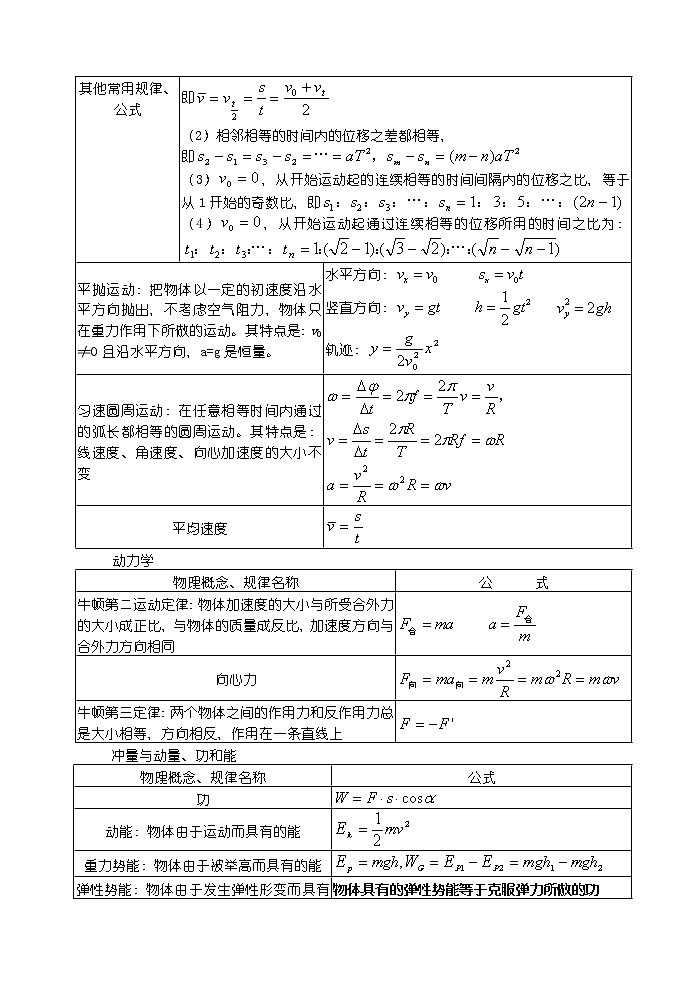 其他常用规律、
公式
即 v̄ = v_{t/2} = s/t = (v₀ + v_t)/2
（2）相邻相等的时间内的位移之差都相等，
即 s₂ − s₁ = s₃ − s₂ = ⋯ = aT²， s_m − s_n = (m − n)aT²
（3）v₀ = 0，从开始运动起的连续相等的时间间隔内的位移之比，等于
从1开始的奇数比，即 s₁：s₂：s₃：⋯：s_n = 1：3：5：⋯：(2n − 1)
（4）v₀ = 0，从开始运动起通过连续相等的位移所用的时间之比为：
t₁：t₂：t₃：⋯：t_n = 1：(√2 − 1)：(√3 − √2)：⋯：(√n − √(n − 1))
平抛运动：把物体以一定的初速度沿水
平方向抛出，不考虑空气阻力，物体只
在重力作用下所做的运动。其特点是：v₀
≠0 且沿水平方向，a=g 是恒量。
水平方向：v_x = v₀ s_x = v₀t
竖直方向：v_y = gt h = 1/2 gt² v_y² = 2gh
轨迹：y = g/(2v₀²) x²
匀速圆周运动：在任意相等时间内通过
的弧长都相等的圆周运动。其特点是：
线速度、角速度、向心加速度的大小不
变
ω = Δφ/Δt = 2πf = 2π/T v = v/R，
v = Δs/Δt = 2πR/T = 2πRf = ωR
a = v²/R = ω²R = ωv
平均速度
v̄ = s/t
动力学
物理概念、规律名称 公 式
牛顿第二运动定律：物体加速度的大小与所受合外力
的大小成正比，与物体的质量成反比，加速度方向与
合外力方向相同
F合 = ma a = F合/m
向心力
F向 = ma向 = m v²/R = mω²R = mωv
牛顿第三定律：两个物体之间的作用力和反作用力总
是大小相等，方向相反，作用在一条直线上
F = −F'
冲量与动量、功和能
物理概念、规律名称 公式
功 W = F · s · cosα
动能：物体由于运动而具有的能 E_k = 1/2 mv²
重力势能：物体由于被举高而具有的能 E_p = mgh, W_G = E_{P1} − E_{P2} = mgh₁ − mgh₂
弹性势能：物体由于发生弹性形变而具有 物体具有的弹性势能等于克服弹力所做的功